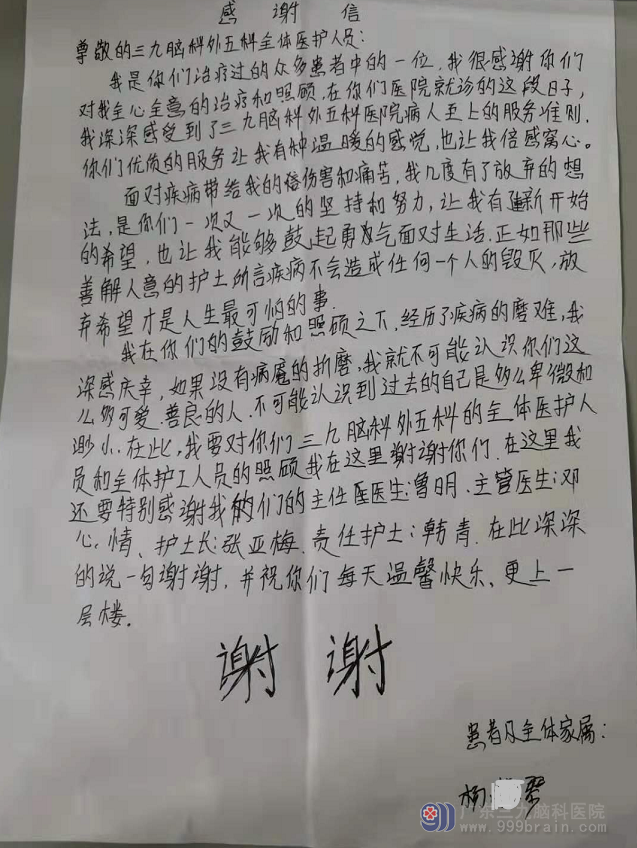 感 谢 信
尊敬的三九脑科外五科全体医护人员：
我是你们治疗过的众多患者中的一位，我很感谢你们
对我全心全意的治疗和照顾，在你们医院就诊的这段日子，
我深深感受到了三九脑科外五科医院病人至上的服务准则，
你们优质的服务让我有种温暖的感觉，也让我倍感窝心。
面对疾病带给我的伤害和痛苦，我几度有了放弃的想
法，是你们一次又一次的坚持和努力，让我有重新开始
的希望，也让我能够鼓起勇气面对生活，正如那些
善解人意的护士所言疾病不会造成任何一个人的毁灭，放
弃希望才是人生最可怕的事.
我在你们的鼓励和照顾之下，经历了疾病的磨难，我
深感庆幸，如果没有病魔的折磨，我就不可能认识你们这
么的可爱.善良的人，不可能认识到过去的自己是多么卑微和
渺小.在此，我要对你们三九脑科外五科的全体医护人
员和全体护工人员的照顾我在这里谢谢你们.在这里我
还要特别感谢我的们的主任医生：鲁明.主管医生：邓
心情、护士长：张亚梅.责任护士：韩青.在此深深
的说一句谢谢，并祝你们每天温馨快乐、更上一
层楼.
谢 谢
患者及全体家属：
杨 琴
广东三九脑科医院
www.999brain.com